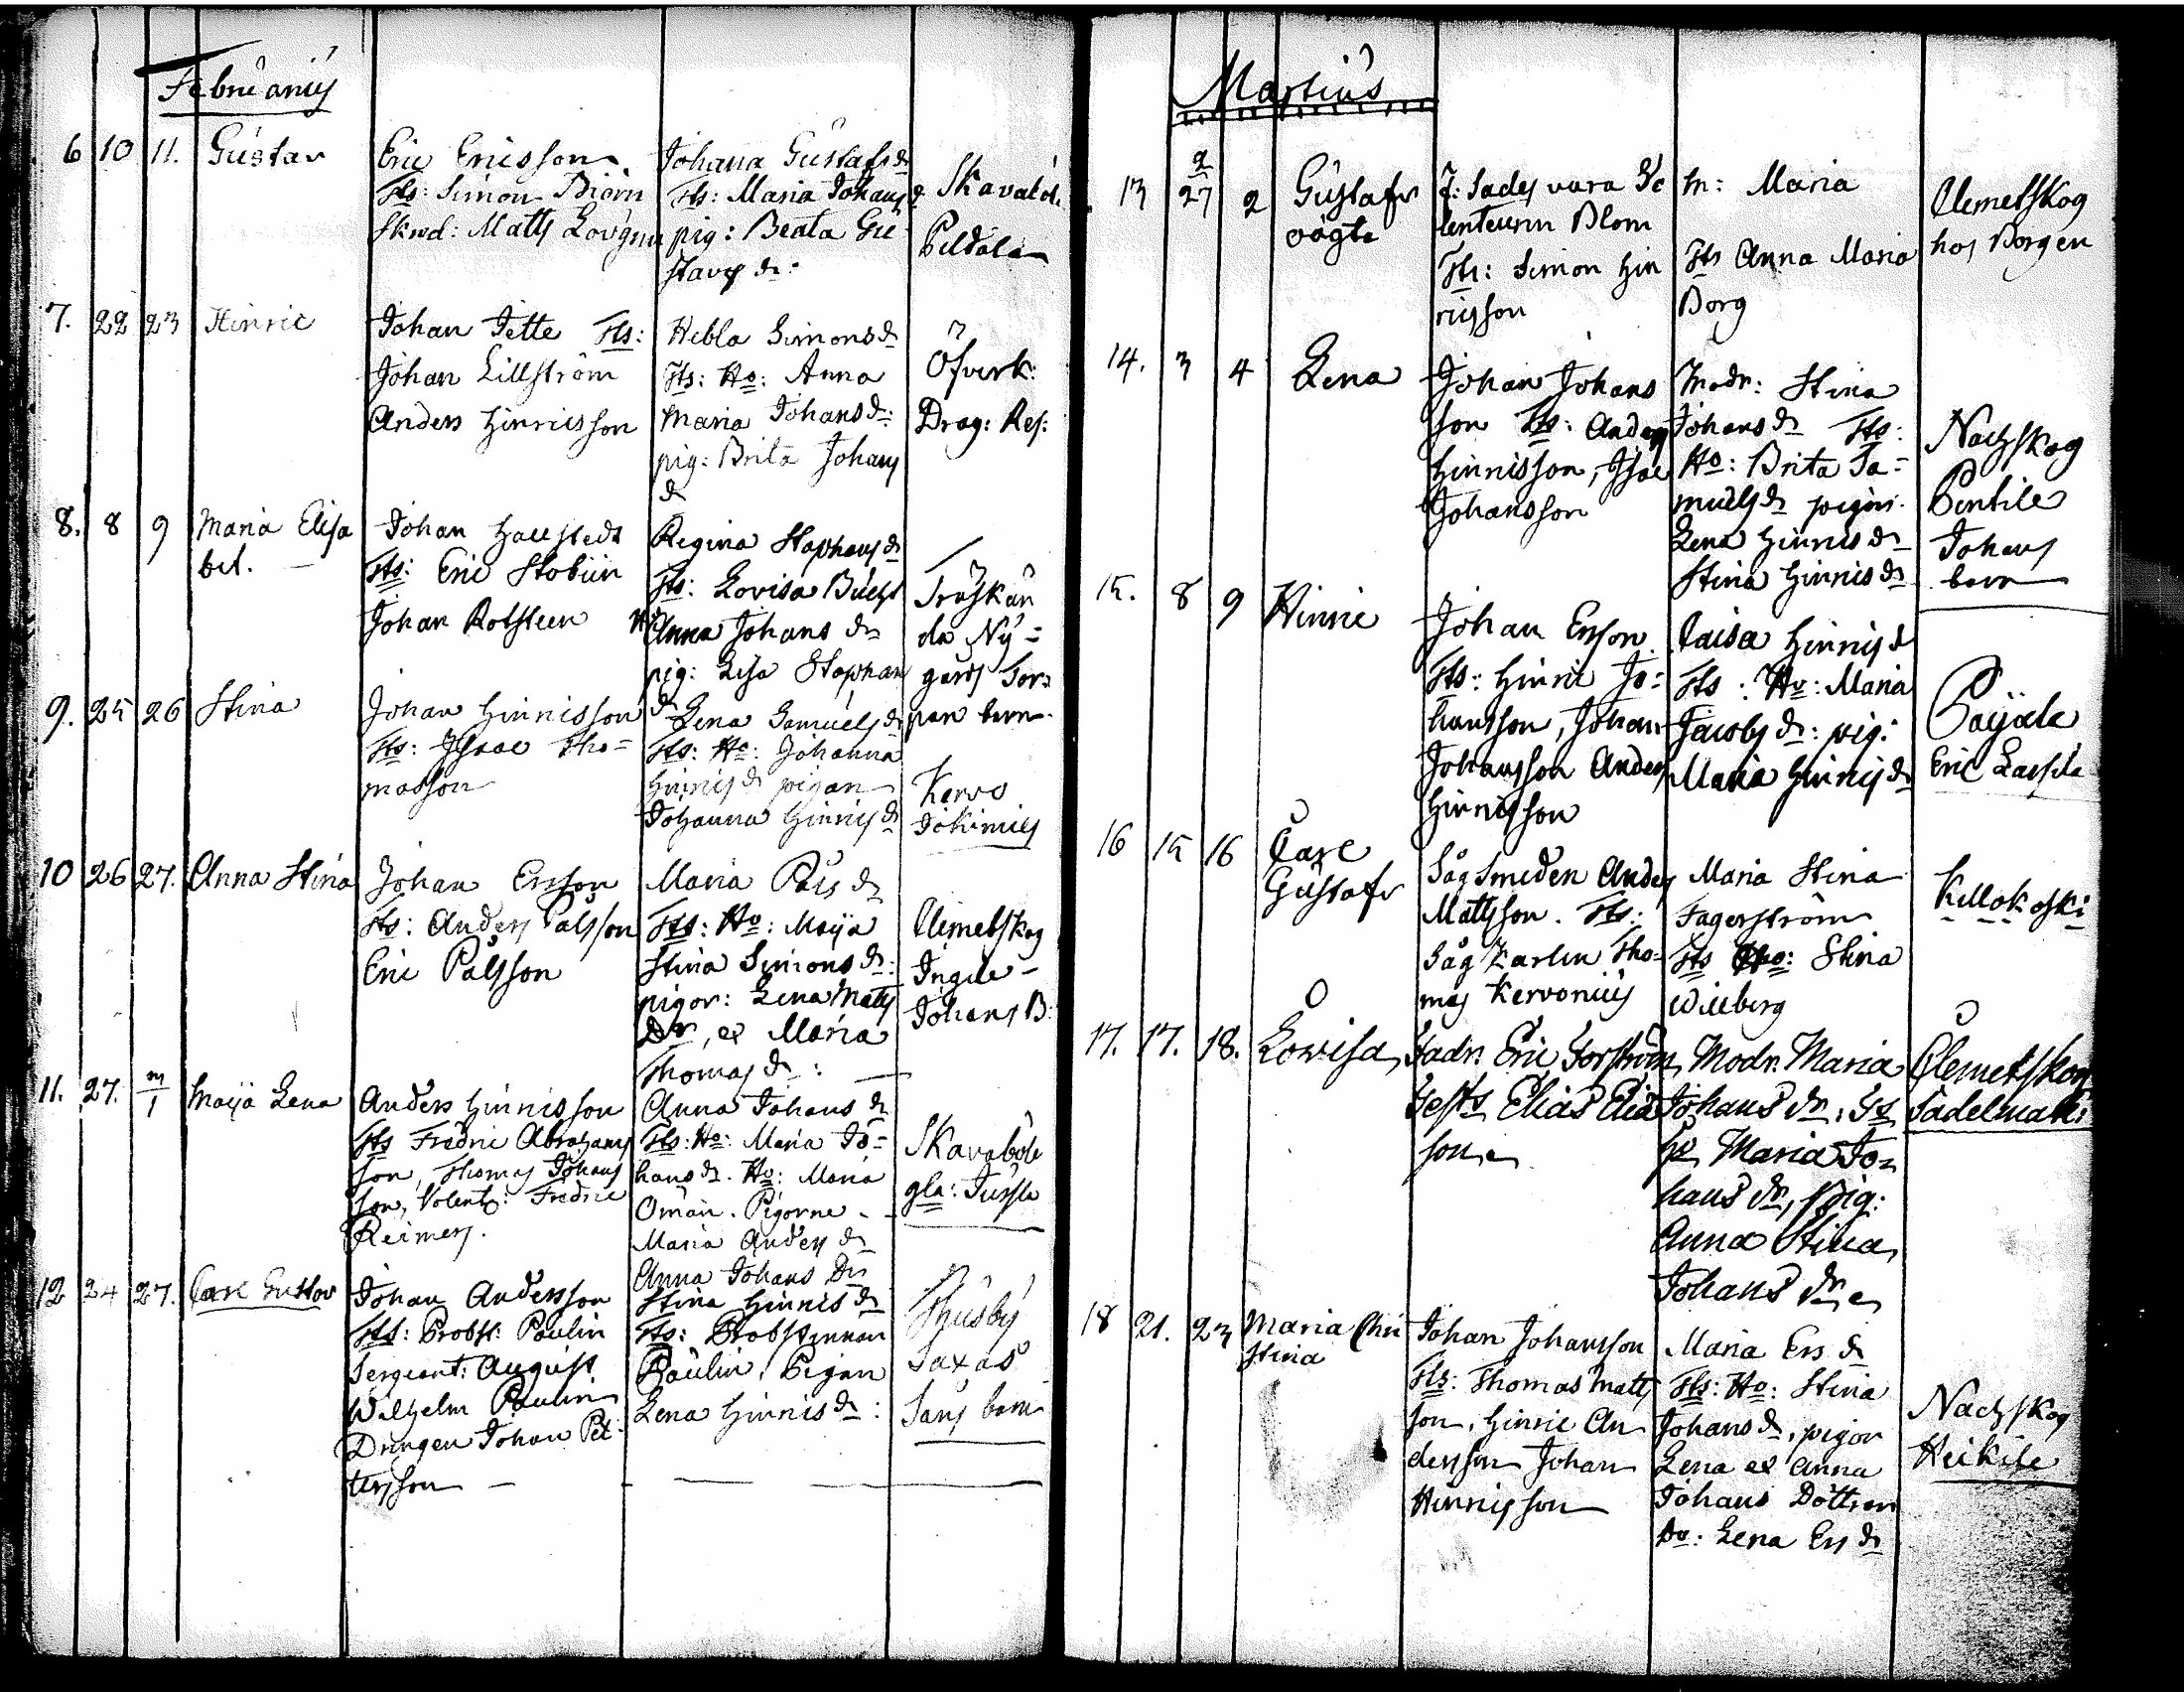 Februarius
6 10 11. Gustav
Eric Ericsson
Fts: Simon Biörn
Skrd: Matts Lovgren
Johana Gustafs dr
Fts: Maria Johans dr
pig: Beata Gu
stavs dr:
Skavaböle
Pildala
7. 22 23 Hinric
Johan Jette Fts:
Johan Lillström
Anders Hinricsson
Hebla Simons dr
Fts: Ho: Anna
Maria Johans dr:
pig: Brita Johans
dr
Öfverk:
Drag: Res:
8. 8 9 Maria Elisa
bet. —
Johan Hallstedt
Fts: Eric Stobiin
Johan Rotsteen
Regina Staphans dr
Fts: Lovisa Bucht
Ho Anna Johans dr
pig: Lisa Staphans
dr
Träskän
da Ny=
gårds Tor=
pare barn
9. 25 26 Stina
Johan Hinricsson
Fts: Isaac Tho=
masson
Lena Samuels dr
Fts: Ho: Johanna
Hinrics dr pigan
Johanna Hinrics dr
Kervo
Jokimies
10 26 27. Anna Stina
Johan Ersson
Fts: Anders Pålsson
Eric Pålsson
Maria Påls dr
Fts: Ho: Maija
Stina Simons dr:
pigor: Lena Matts
Dr, et Maria
Thomas dr: —
Clemetskog
Ingile-
Johans B:
11. 27. m/1 Maija Lena
Anders Hinricsson
Fts Fredric Abrahams
son, Thomas Johans
son, Volent: Fredric
Reimers.
Anna Johans dr
Fts: Ho: Maria Jo=
hans dr. Ho: Maria
Öman. Pigorne -
Maria Anders dr
Anna Johans Dr
Skavaböle
gla: Jussila
12 24 27. Carl Gustav
Johan Andersson
Fts: Probst: Paulin
Sergeant: August
Wilhelm Paulin
Drängen Johan Pet-
tersson —
Stina Hinrics dr
Fts: Probstinnan
Paulin, Pigan
Lena Hinrics dr:
Thusby
Saxas
Sans barn
Martius
13 2/27 2 Gustafs
oägta
F: Sades vara Vo
lenteurn Blom
Fts: Simon Hin
ricsson
M: Maria
Fts Anna Maria
Borg
Clemetskog
hos Borgen
14. 3 4 Lena
Johan Johans
son Fts: Anders
Hinricsson, Isac
Johansson
Modr: Stina
Johans dr Fts:
Ho: Brita Sa=
muels dr pigor.
Lena Hinrics dr
Stina Hinrics dr
Nackskog
Pentile
Johans
barn
15. 8 9 Hinric
Johan Ersson.
Fts: Hinric Jo=
hansson, Johan
Johansson Anders
Hinricsson
Caisa Hinrics dr
Fts: Ho: Maria
Jacobs dr: pig:
Maria Hinrics dr
Paijala
Eric Lassila
16 15 16 Carl
Gustafs
Såg Smeden Anders
Mattsson. Fts:
Såg Karlen Tho=
mas Kervonius
Maria Stina
Fagerström
Fts Ho: Stina
Willberg
Killokoski
17. 17. 18. Lovisa
Fadr. Eric Forström
Tests Elias Elias
son
Modr. Maria
Johans dr: Ts
ho Maria Jo=
hans dr, Pig:
Anna Stina
Johans dr
Clemetskog
Sadelmak:
18 21. 23 Maria Chri
stina
Johan Johansson
Fts: Thomas Matts
son, Hinric An
dersson Johan
Hinricsson
Maria Ers dr
Fts: Ho: Stina
Johans dr, pigor
Lena et Anna
Johans Döttrar
Do: Lena Ers dr
Nackskog
Heikile